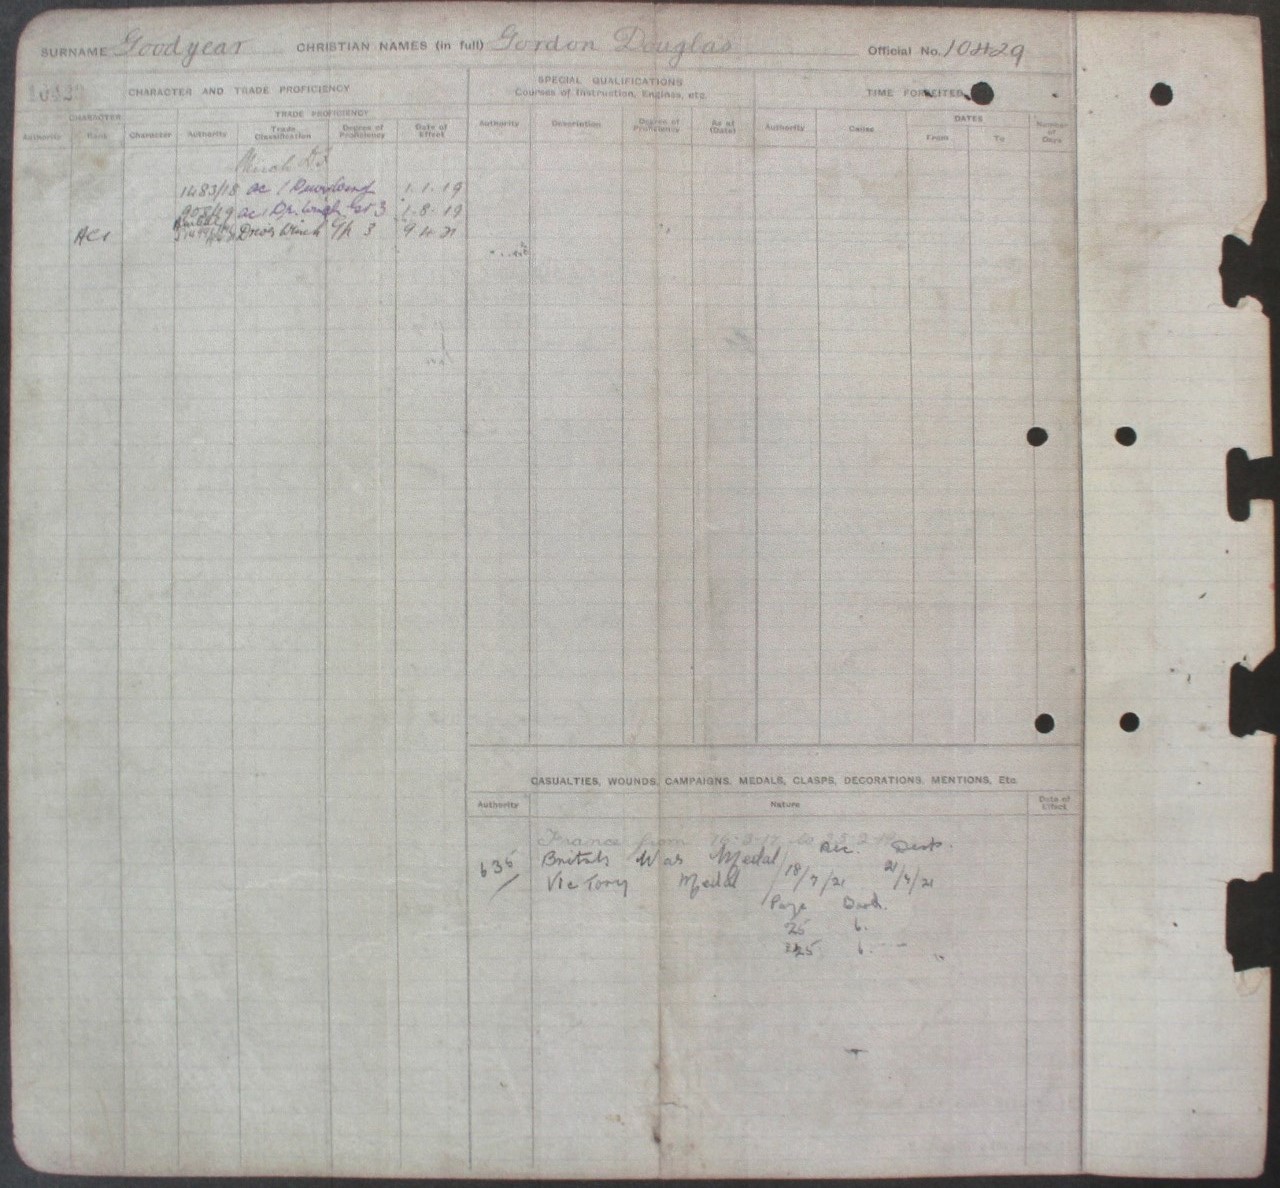 SURNAME Goodyear CHRISTIAN NAMES (in full) Gordon Douglas Official No. 10429
CHARACTER AND TRADE PROFICIENCY
CHARACTER
TRADE PROFICIENCY
Authority Rank Character Authority Trade Classification Degree of Proficiency Date of Effect
1483/18 ac 1 1.1.19
908/19 ac 1 Gp 3 1.8.19
AC1 Driver Winch Gp 3 9.4.21
SPECIAL QUALIFICATIONS
Courses of Instruction, Engines, etc.
Authority Description Degree of Proficiency As at (Date)
TIME FORFEITED
DATES
Authority Cause From To Number of Days
CASUALTIES, WOUNDS, CAMPAIGNS, MEDALS, CLASPS, DECORATIONS, MENTIONS, Etc.
Authority Nature Date of Effect
France from 16-3-17 to
Rec. Desp.
635 British War Medal
Victory Medal 18/7/21 21/7/21
Page Book
25 6.
25 6.